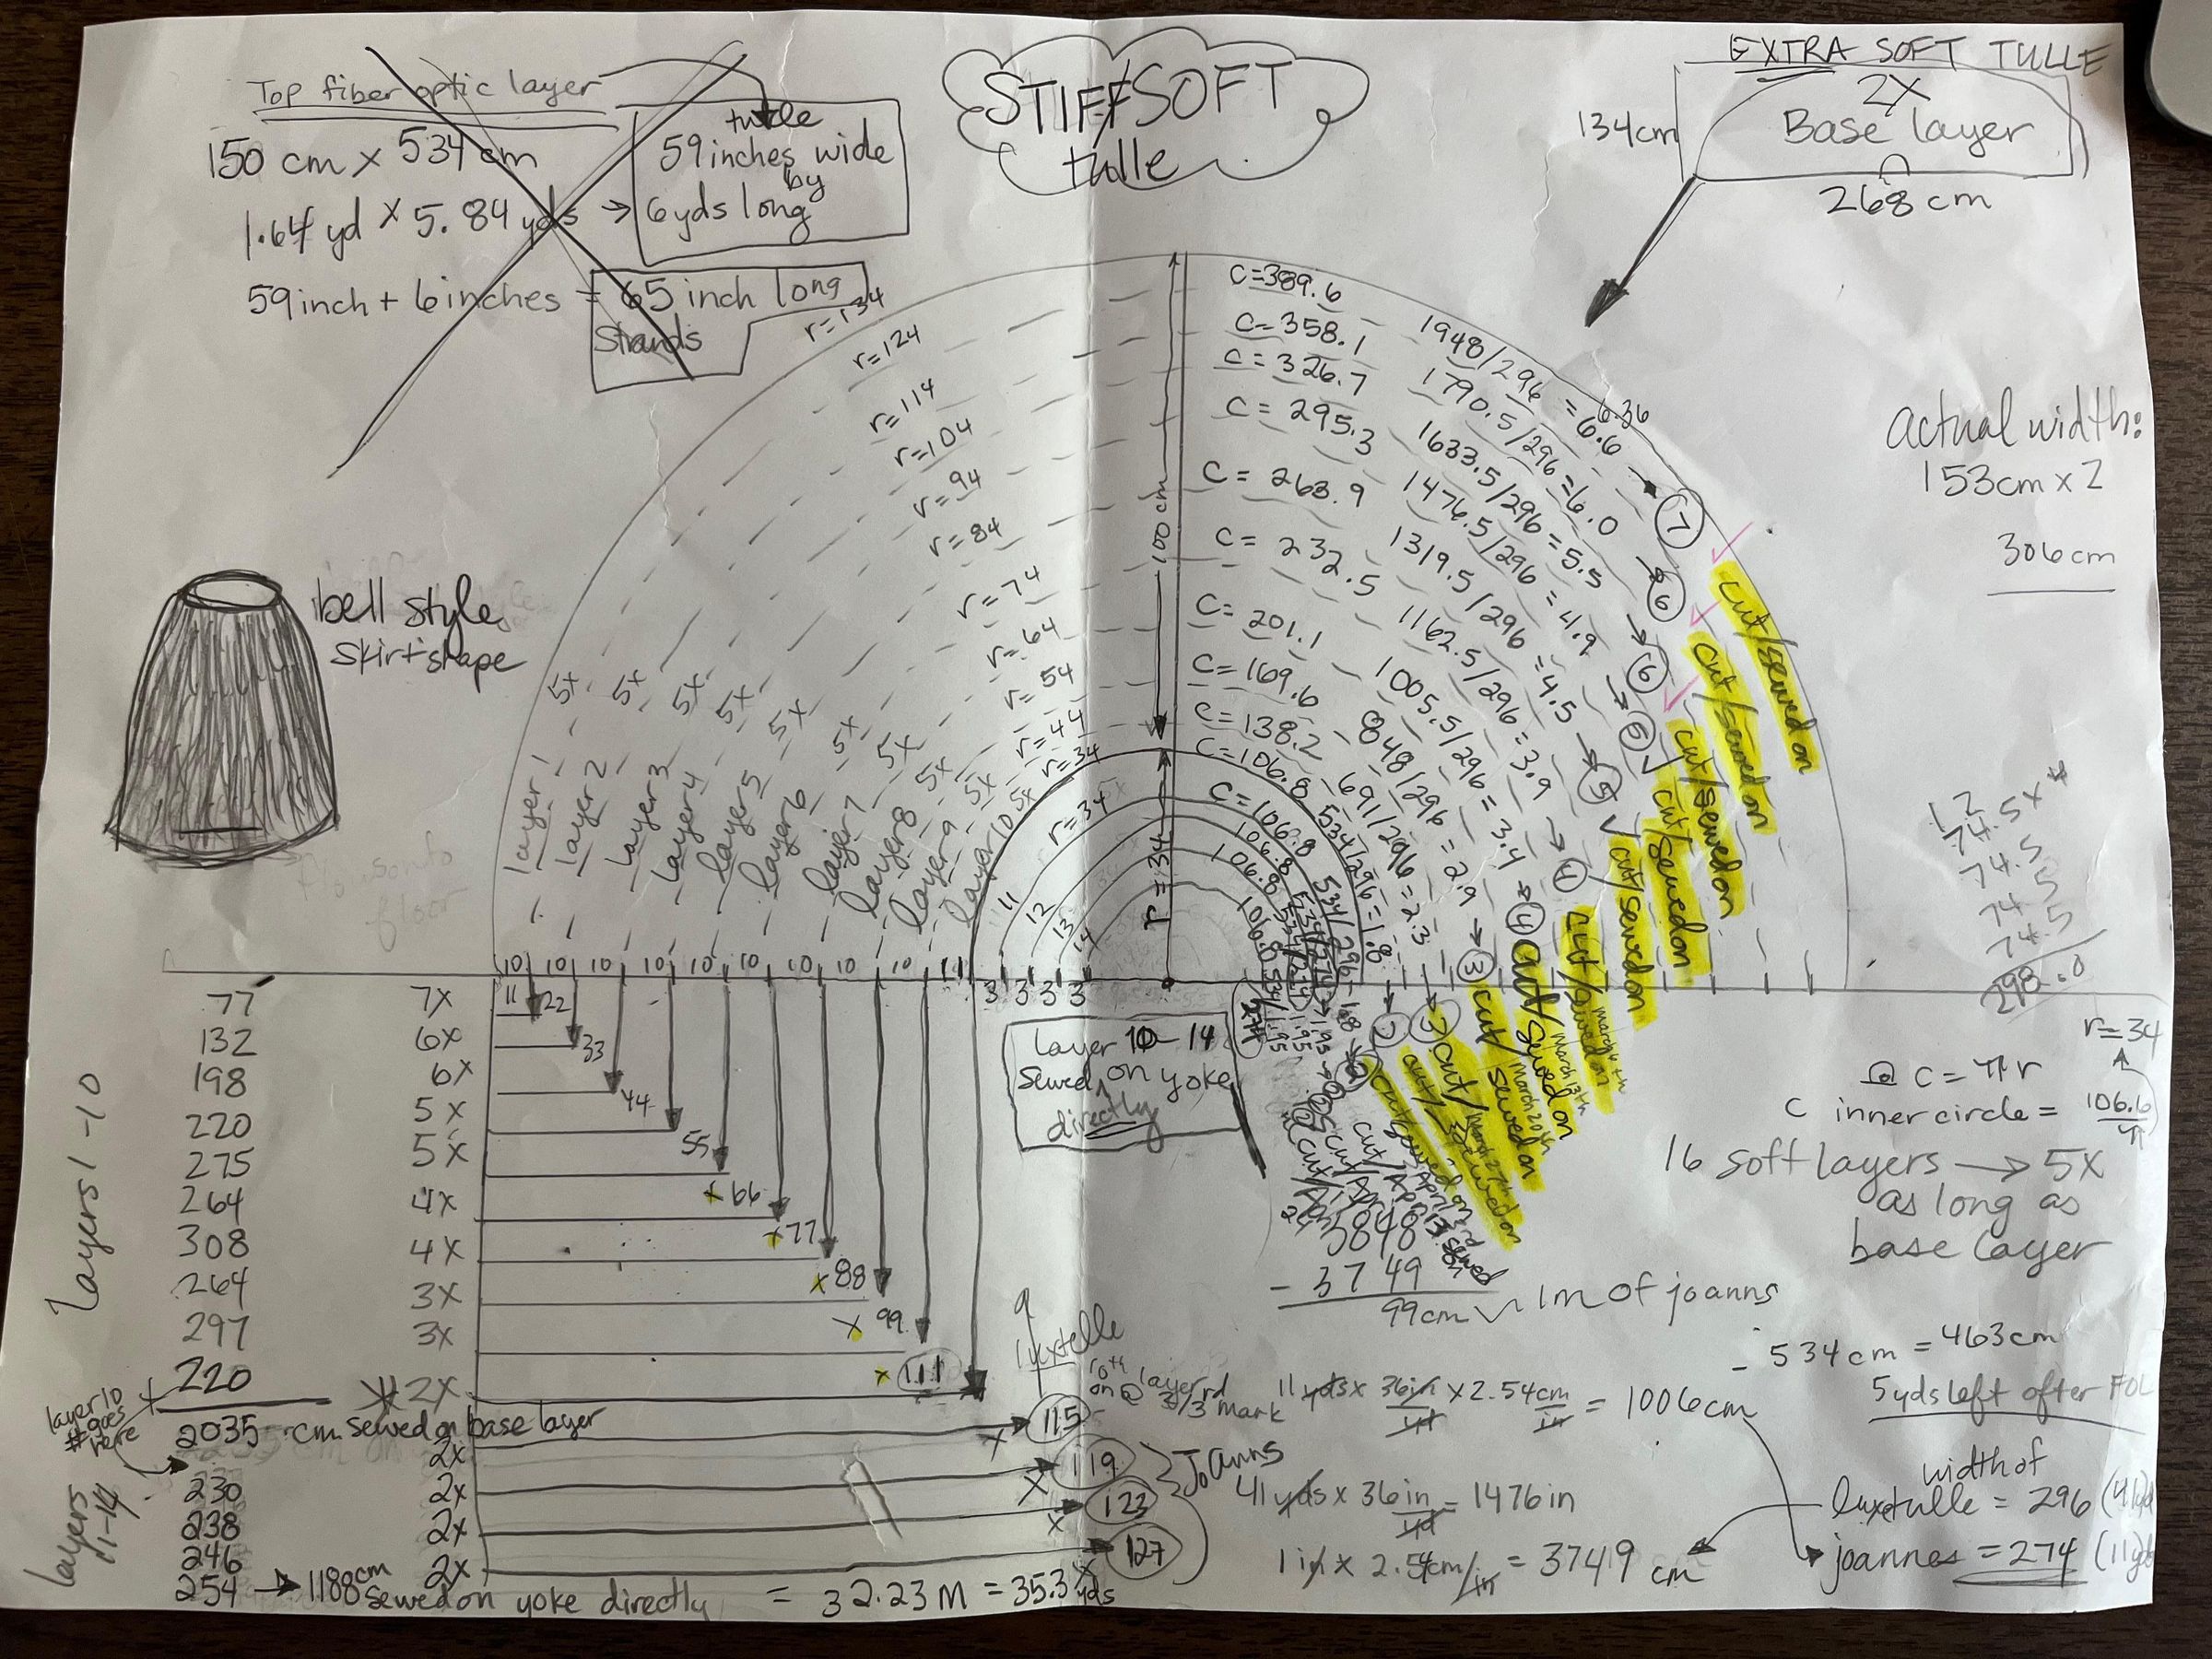 Top fiber optic layer
150 cm x 534 cm
1.64 yd x 5.84 yds →
59 inch + 6 inches = 65 inch long
strands
tulle
59 inches wide
by
6 yds long
STIFF/SOFT
tulle
EXTRA SOFT TULLE
2X
Base layer
134cm
268 cm
actual width:
153cm x 2
306cm
bell style
skirt shape
r=134
r=124
r=114
r=104
r=94
r=84
r=74
r=64
r=54
r=44
r=34
r=34
100 cm
r=34
C=389.6
C=358.1
C=326.7
C=295.3
C=263.9
C=232.5
C=201.1
C=169.6
C=138.2
C=106.8
C=106.8
106.8
106.8
106.8
1948/296 = 6.6
6.36
1790.5/296=6.0
1633.5/296=5.5
1476.5/296=4.9
1319.5/296=4.5
1162.5/296=3.9
1005.5/296=3.4
848/296=2.9
691/296=2.3
534/296=1.8
534/296
7
6
6
5
4
4
3
cut/sewed on
cut/sewed on
cut/sewed on
cut/sewed on
cut/sewed on
cut/sewed on
cut/sewed on
March 13th
March 20th
March 27th
5x 5x 5x 5x 5x 5x 5x 5x 5x 5x
layer 1
layer 2
layer 3
layer 4
layer 5
layer 6
layer 7
layer 8
layer 9
layer 10
11
12
13
14
10 10 10 10 10 10 10 10 10 11 3 3 3 3
layers 1-10
77 7x 11
132 6x 22
198 6x 33
220 5x 44
275 5x 55
264 4x x 66
308 4x x 77
264 3x x 88
297 3x x 99
220 2x x 111
layer 10
# goes
here
2035 cm sewed on base layer
layers
11-14
230 2x 115
238 2x 119
246 2x 123
254 2x 127
→ 1188cm
sewed on yoke directly = 32.23 M = 35.3 yds
layer 10-14
sewed on yoke
directly
on @ layer
3/3rd mark
Joanns
74.5 x 4
12
74.5
74.5
74.5
74.5
298.0
r=34
C = πr
C inner circle = 106.6
π
16 soft layers → 5x
as long as
base layer
3848
- 3749
99cm ~ 1m of joanns
- 534 cm = 463cm
5yds left after FOL
11 yds x 36in/yd x 2.54cm/in = 1006cm
41 yds x 36 in/yd = 1476 in
1 in x 2.54cm/in = 3749 cm
width of
luxtulle = 296 (41yd
joannes = 274 (11yd